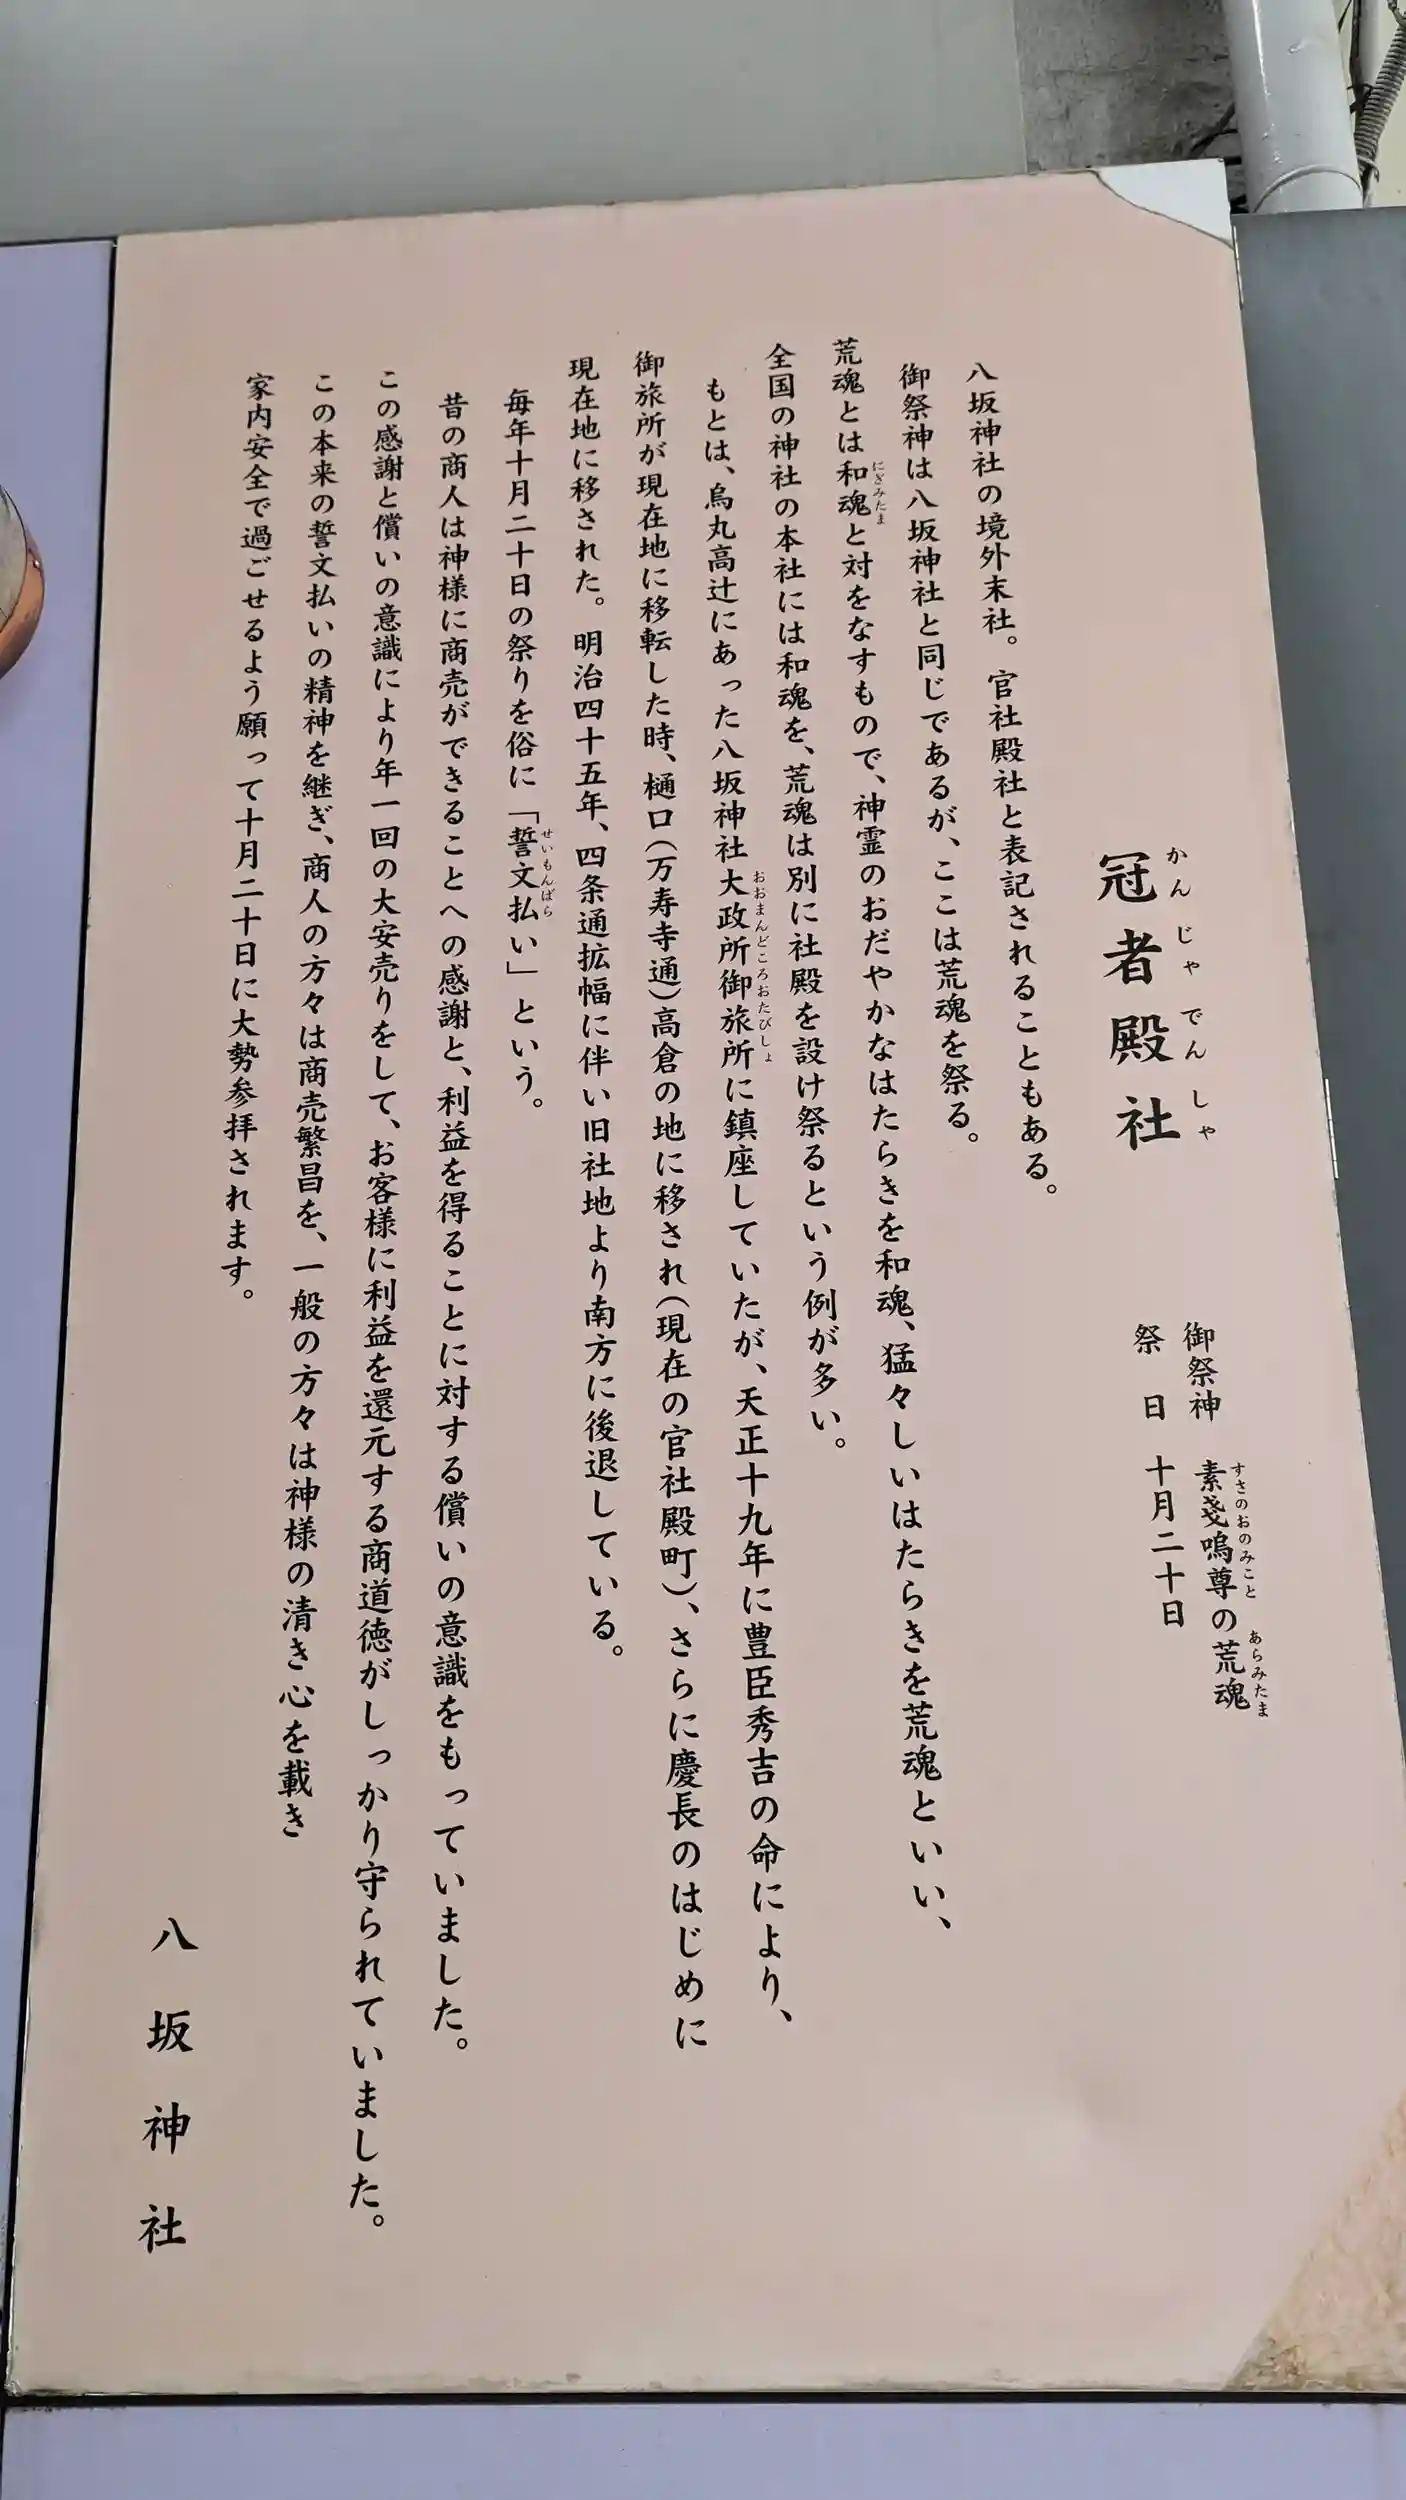 冠者殿社
かんじゃでんしゃ
御祭神 素戔嗚尊の荒魂
すさのおのみこと あらみたま
祭 日 十月二十日
八坂神社の境外末社。官社殿社と表記されることもある。
御祭神は八坂神社と同じであるが、ここは荒魂を祭る。
荒魂とは和魂と対をなすもので、神霊のおだやかなはたらきを和魂、猛々しいはたらきを荒魂といい、
にぎみたま
全国の神社の本社には和魂を、荒魂は別に社殿を設け祭るという例が多い。
もとは、烏丸高辻にあった八坂神社大政所御旅所に鎮座していたが、天正十九年に豊臣秀吉の命により、
おおまんどころおたびしょ
御旅所が現在地に移転した時、樋口(万寿寺通)高倉の地に移され(現在の官社殿町)、さらに慶長のはじめに
現在地に移された。明治四十五年、四条通拡幅に伴い旧社地より南方に後退している。
毎年十月二十日の祭りを俗に「誓文払い」という。
せいもんばら
昔の商人は神様に商売ができることへの感謝と、利益を得ることに対する償いの意識をもっていました。
この感謝と償いの意識により年一回の大安売りをして、お客様に利益を還元する商道徳がしっかり守られていました。
この本来の誓文払いの精神を継ぎ、商人の方々は商売繁昌を、一般の方々は神様の清き心を載き
家内安全で過ごせるよう願って十月二十日に大勢参拝されます。
八坂神社